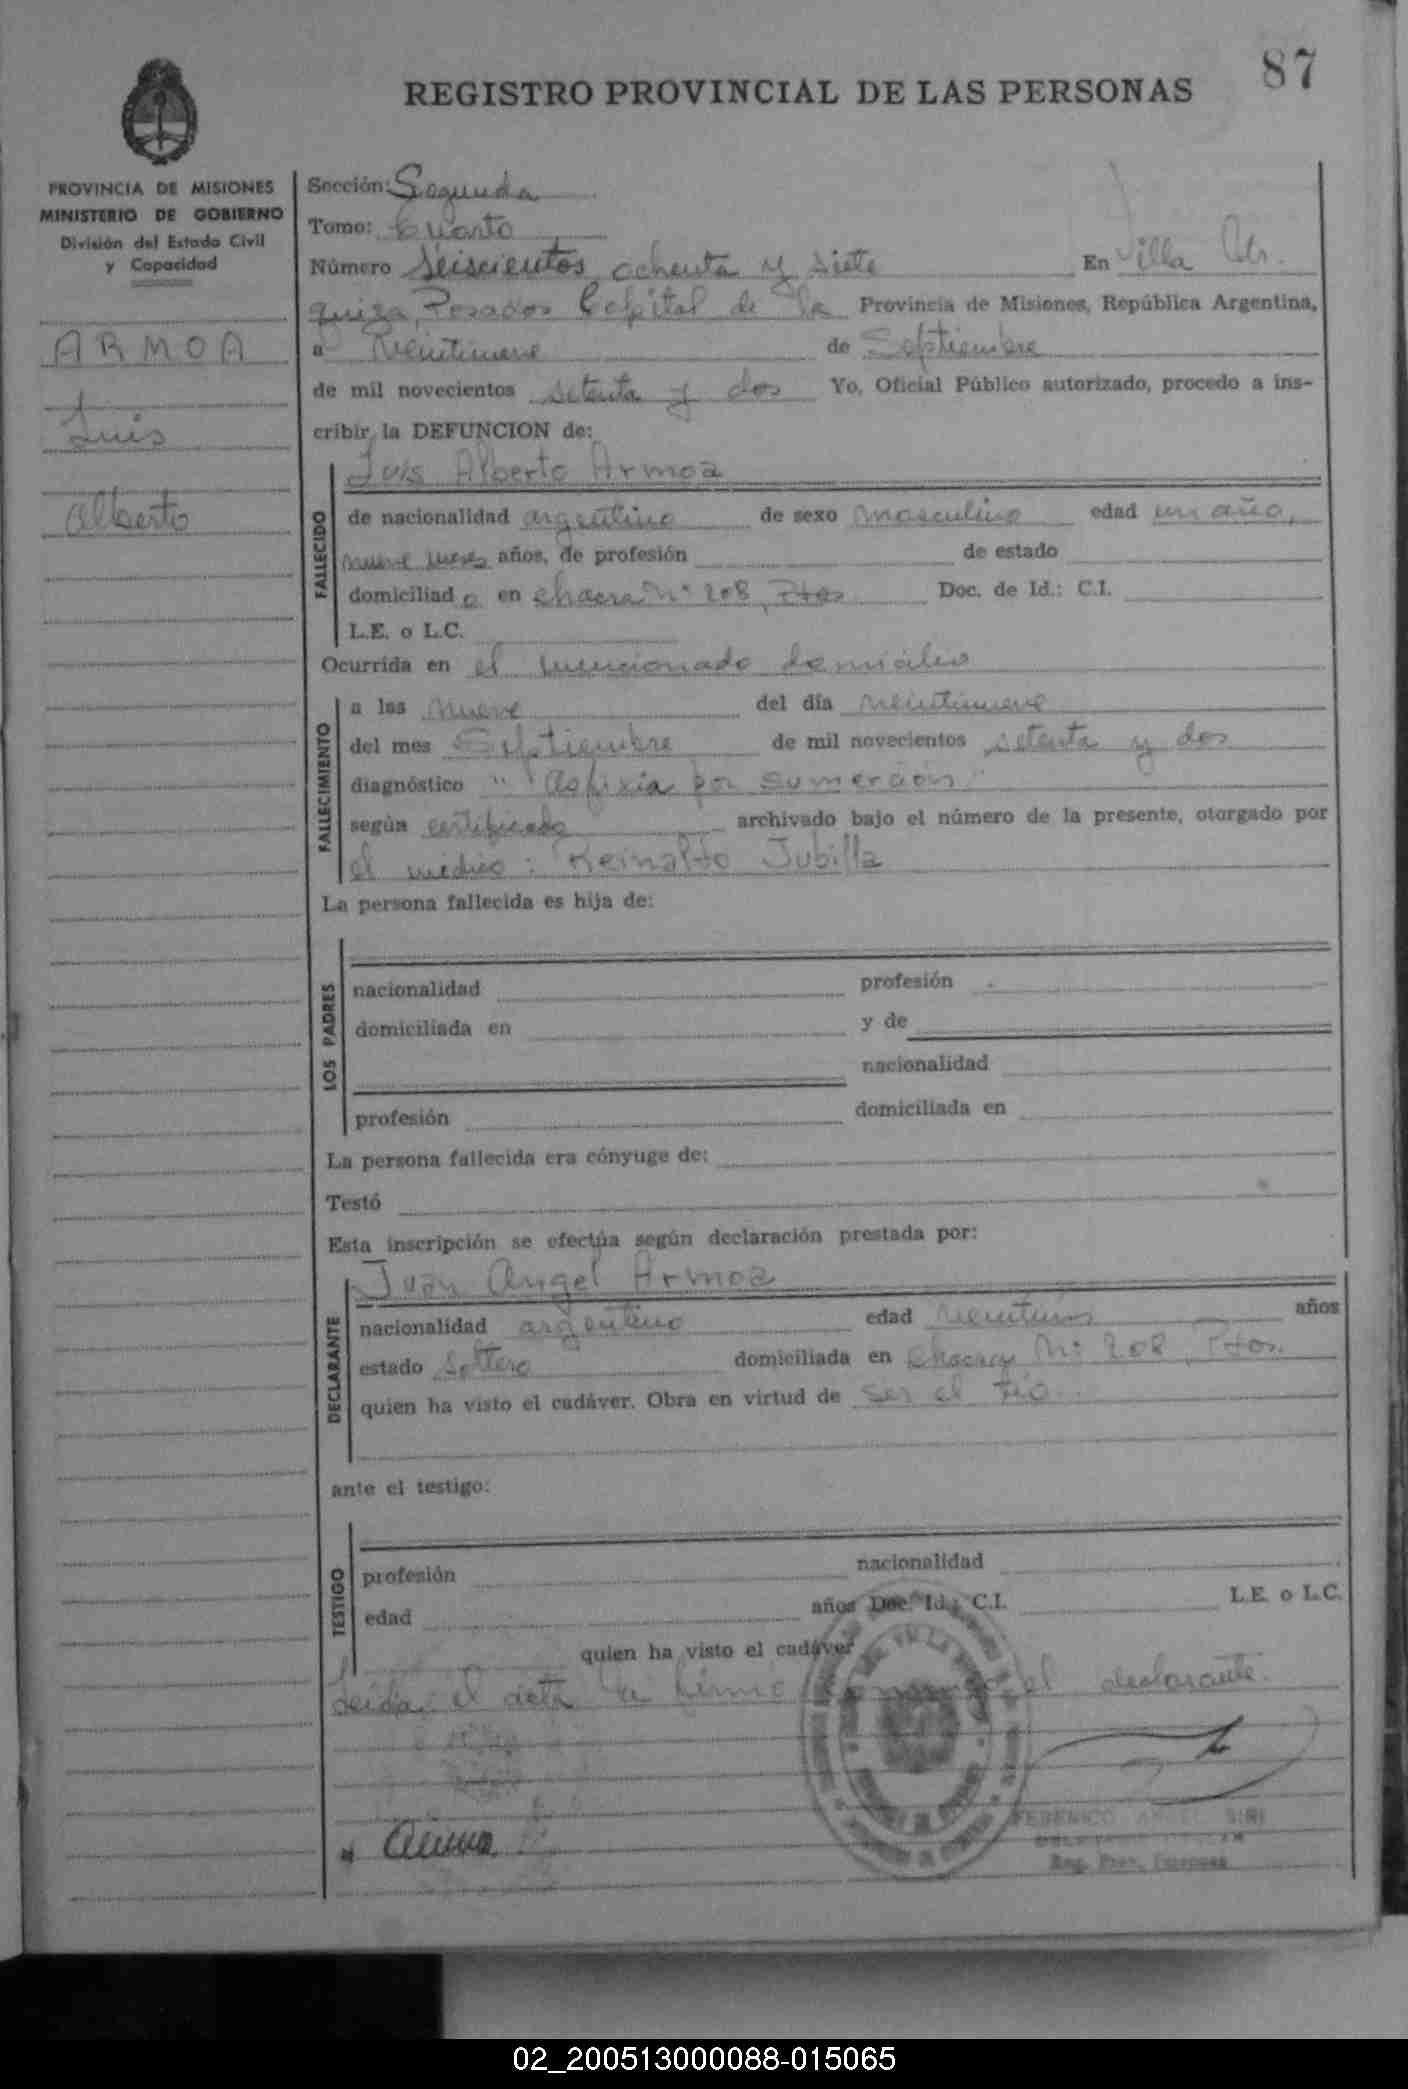 87
REGISTRO PROVINCIAL DE LAS PERSONAS
PROVINCIA DE MISIONES
MINISTERIO DE GOBIERNO
División del Estado Civil
y Capacidad
ARMOA
Luis
Alberto
Sección: Segunda
Tomo: Cuarto
Número Seiscientos ochenta y siete En Villa Ur.
quiza, Posadas Capital de la Provincia de Misiones, República Argentina,
a Veintinueve de Septiembre
de mil novecientos setenta y dos Yo, Oficial Público autorizado, procedo a ins-
cribir la DEFUNCION de:
FALLECIDO
Luis Alberto Armoa
de nacionalidad argentino de sexo masculino edad un año,
nueve meses años, de profesión de estado
domiciliado en chacra Nº 208, Pdas Doc. de Id.: C.I.
L.E. o L.C.
Ocurrida en el mencionado domicilio
FALLECIMIENTO
a las nueve del día veintinueve
del mes Septiembre de mil novecientos setenta y dos
diagnóstico "Asfixia por sumerción"
según certificado archivado bajo el número de la presente, otorgado por
el médico: Reinaldo Jubilla
La persona fallecida es hija de:
LOS PADRES
nacionalidad profesión
domiciliada en y de
nacionalidad
profesión domiciliada en
La persona fallecida era cónyuge de:
Testó
Esta inscripción se efectúa según declaración prestada por:
DECLARANTE
Juan Angel Armoa
nacionalidad argentino edad veintiún años
estado soltero domiciliada en chacra Nº 208, Pdas.
quien ha visto el cadáver. Obra en virtud de ser el tío.
ante el testigo:
TESTIGO
profesión nacionalidad
edad años Doc. Id.: C.I. L.E. o L.C.
quien ha visto el cadáver
Leída el acta la firma el declarante.
FEDERICO ANGEL SIRI
Reg. Prov. Personas
02_200513000088-015065